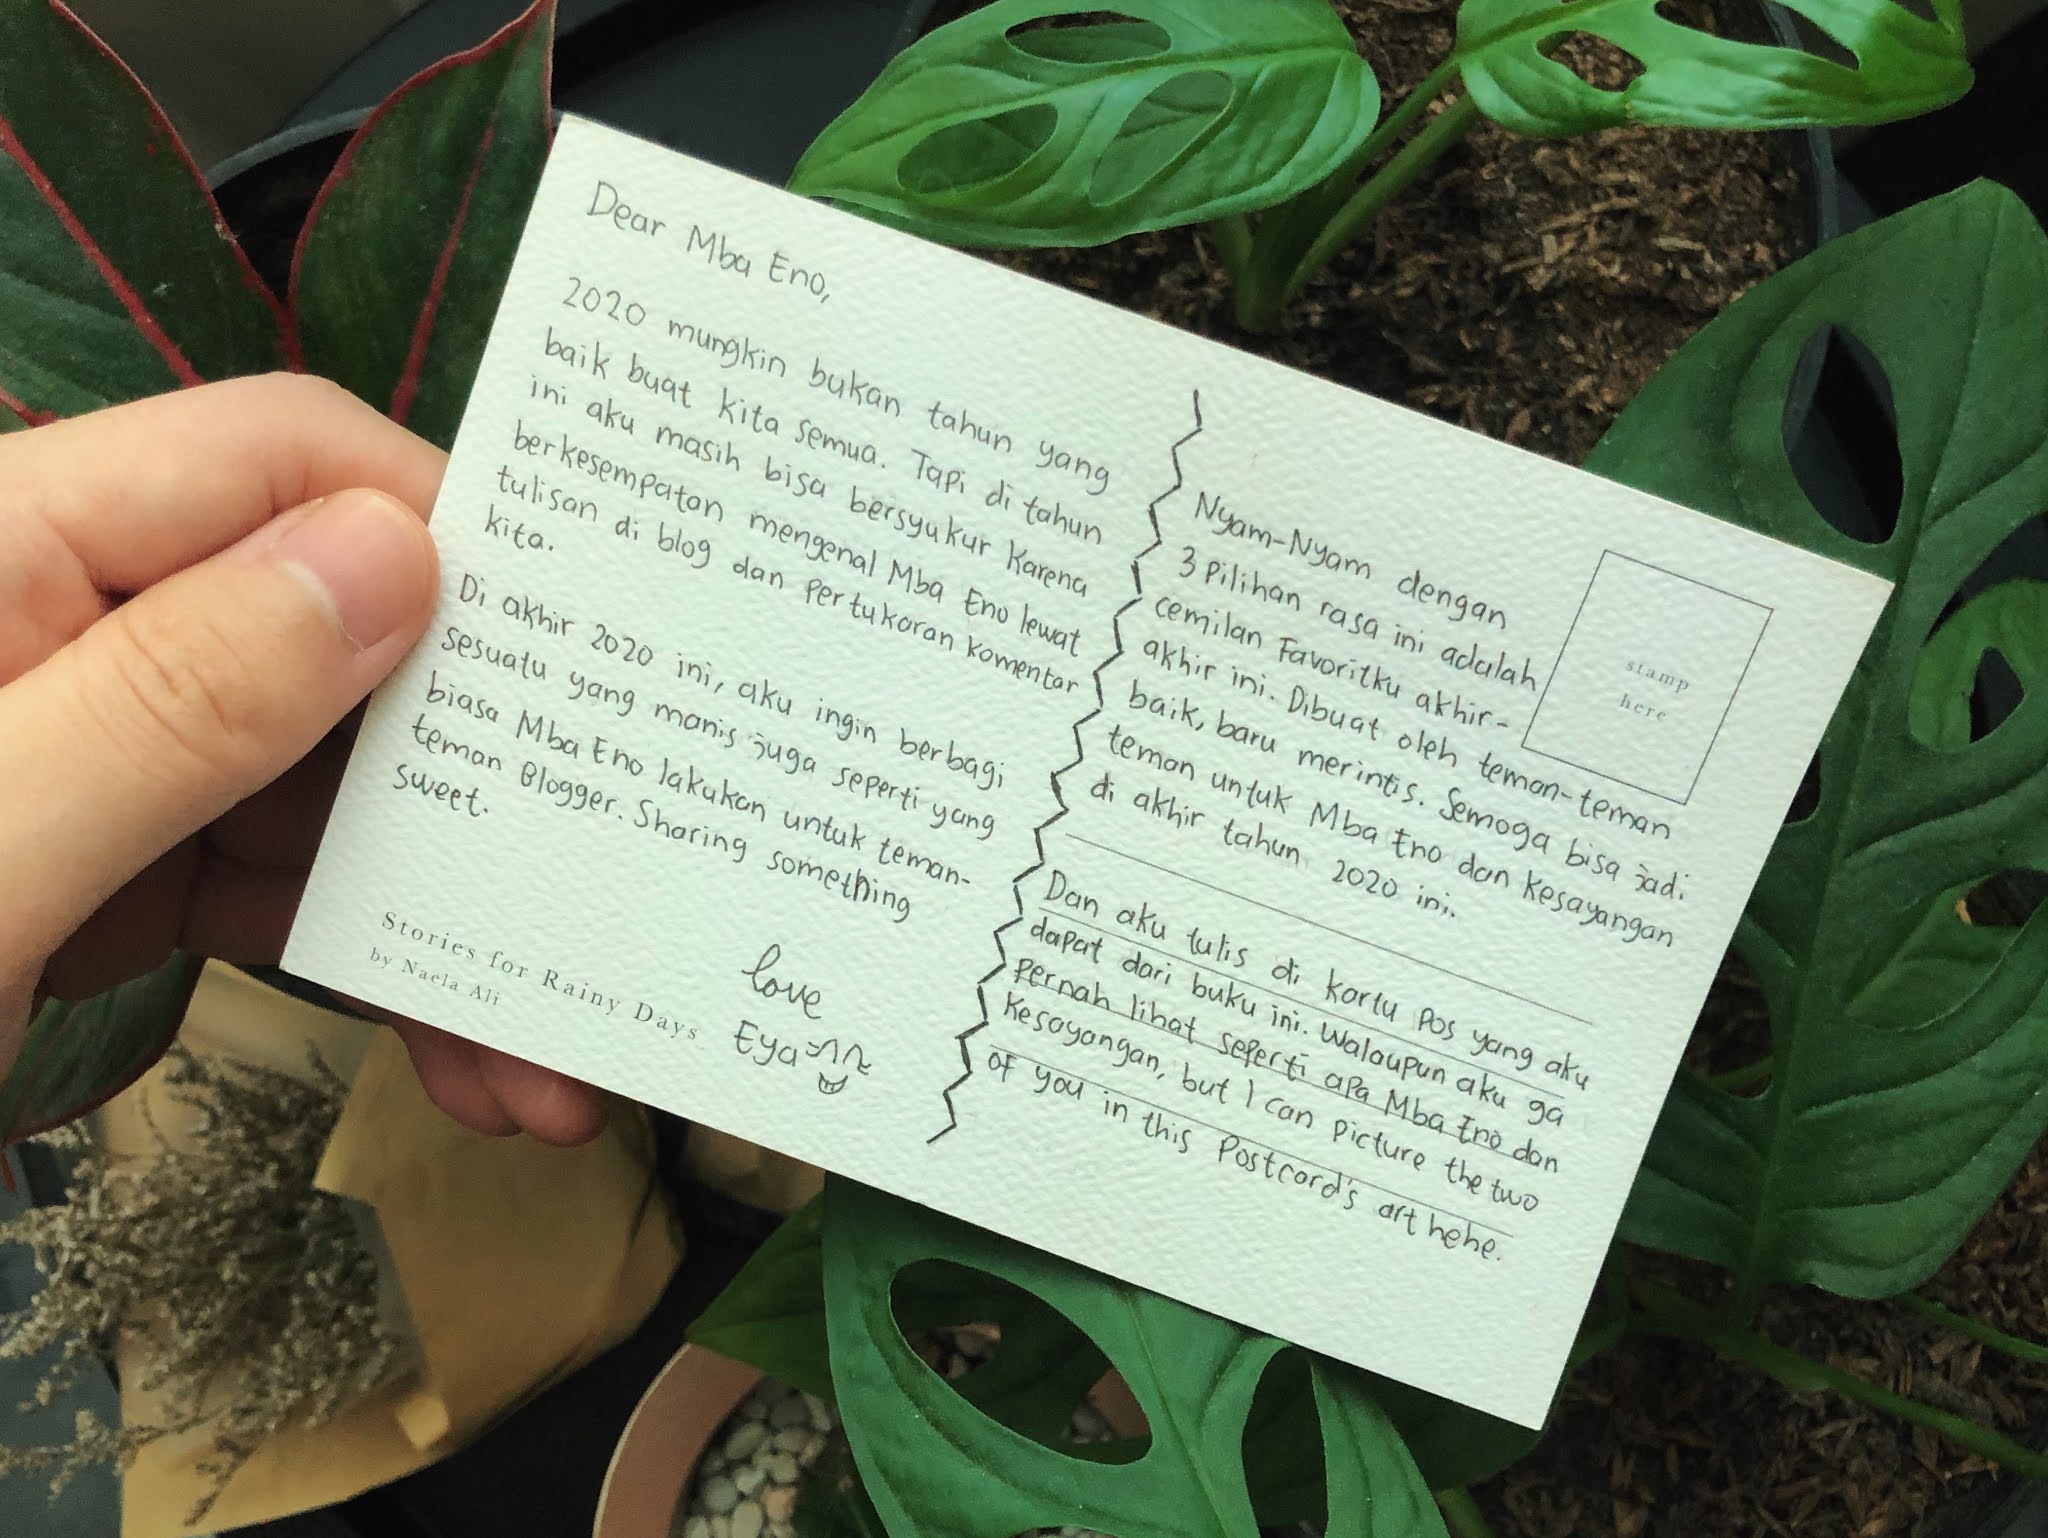 Dear Mba Eno,
2020 mungkin bukan tahun yang
baik buat kita semua. Tapi di tahun
ini aku masih bisa bersyukur karena
berkesempatan mengenal Mba Eno lewat
tulisan di blog dan pertukaran komentar
kita.
Di akhir 2020 ini, aku ingin berbagi
sesuatu yang manis juga seperti yang
biasa Mba Eno lakukan untuk teman-
teman Blogger. Sharing something
sweet.
love
Eya
Stories for Rainy Days
by Naela Ali
Nyam-Nyam dengan
3 pilihan rasa ini adalah
cemilan Favoritku akhir-
akhir ini. Dibuat oleh teman-teman
baik, baru merintis. Semoga bisa jadi
teman untuk Mba Eno dan Kesayangan
di akhir tahun 2020 ini.
Dan aku tulis di kartu pos yang aku
dapat dari buku ini. Walaupun aku ga
pernah lihat seperti apa Mba Eno dan
Kesayangan, but I can picture the two
of you in this Postcard's art hehe.
stamp
here